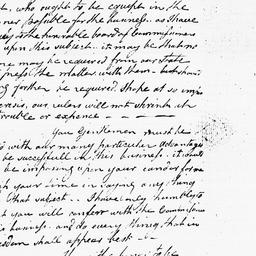 who ought to be couple in the
ner possible for the business. as I have
the Honorable board of Commissioners
upon this subject. it may be that no
me may be required from our State
press the matter with them. but should
ng further be required. I hope at so im
crisis, our rulers will not shrink at
trouble or expence - - -
You Gentlemen must be
d with our many particular advantages
be successfull in this business. it would
be imposing upon your candor for me
your time in saying any thing
that subject. I have only humbly to
t you will confer with the Commissione
business. and do every thing that in
isdom shall appear best